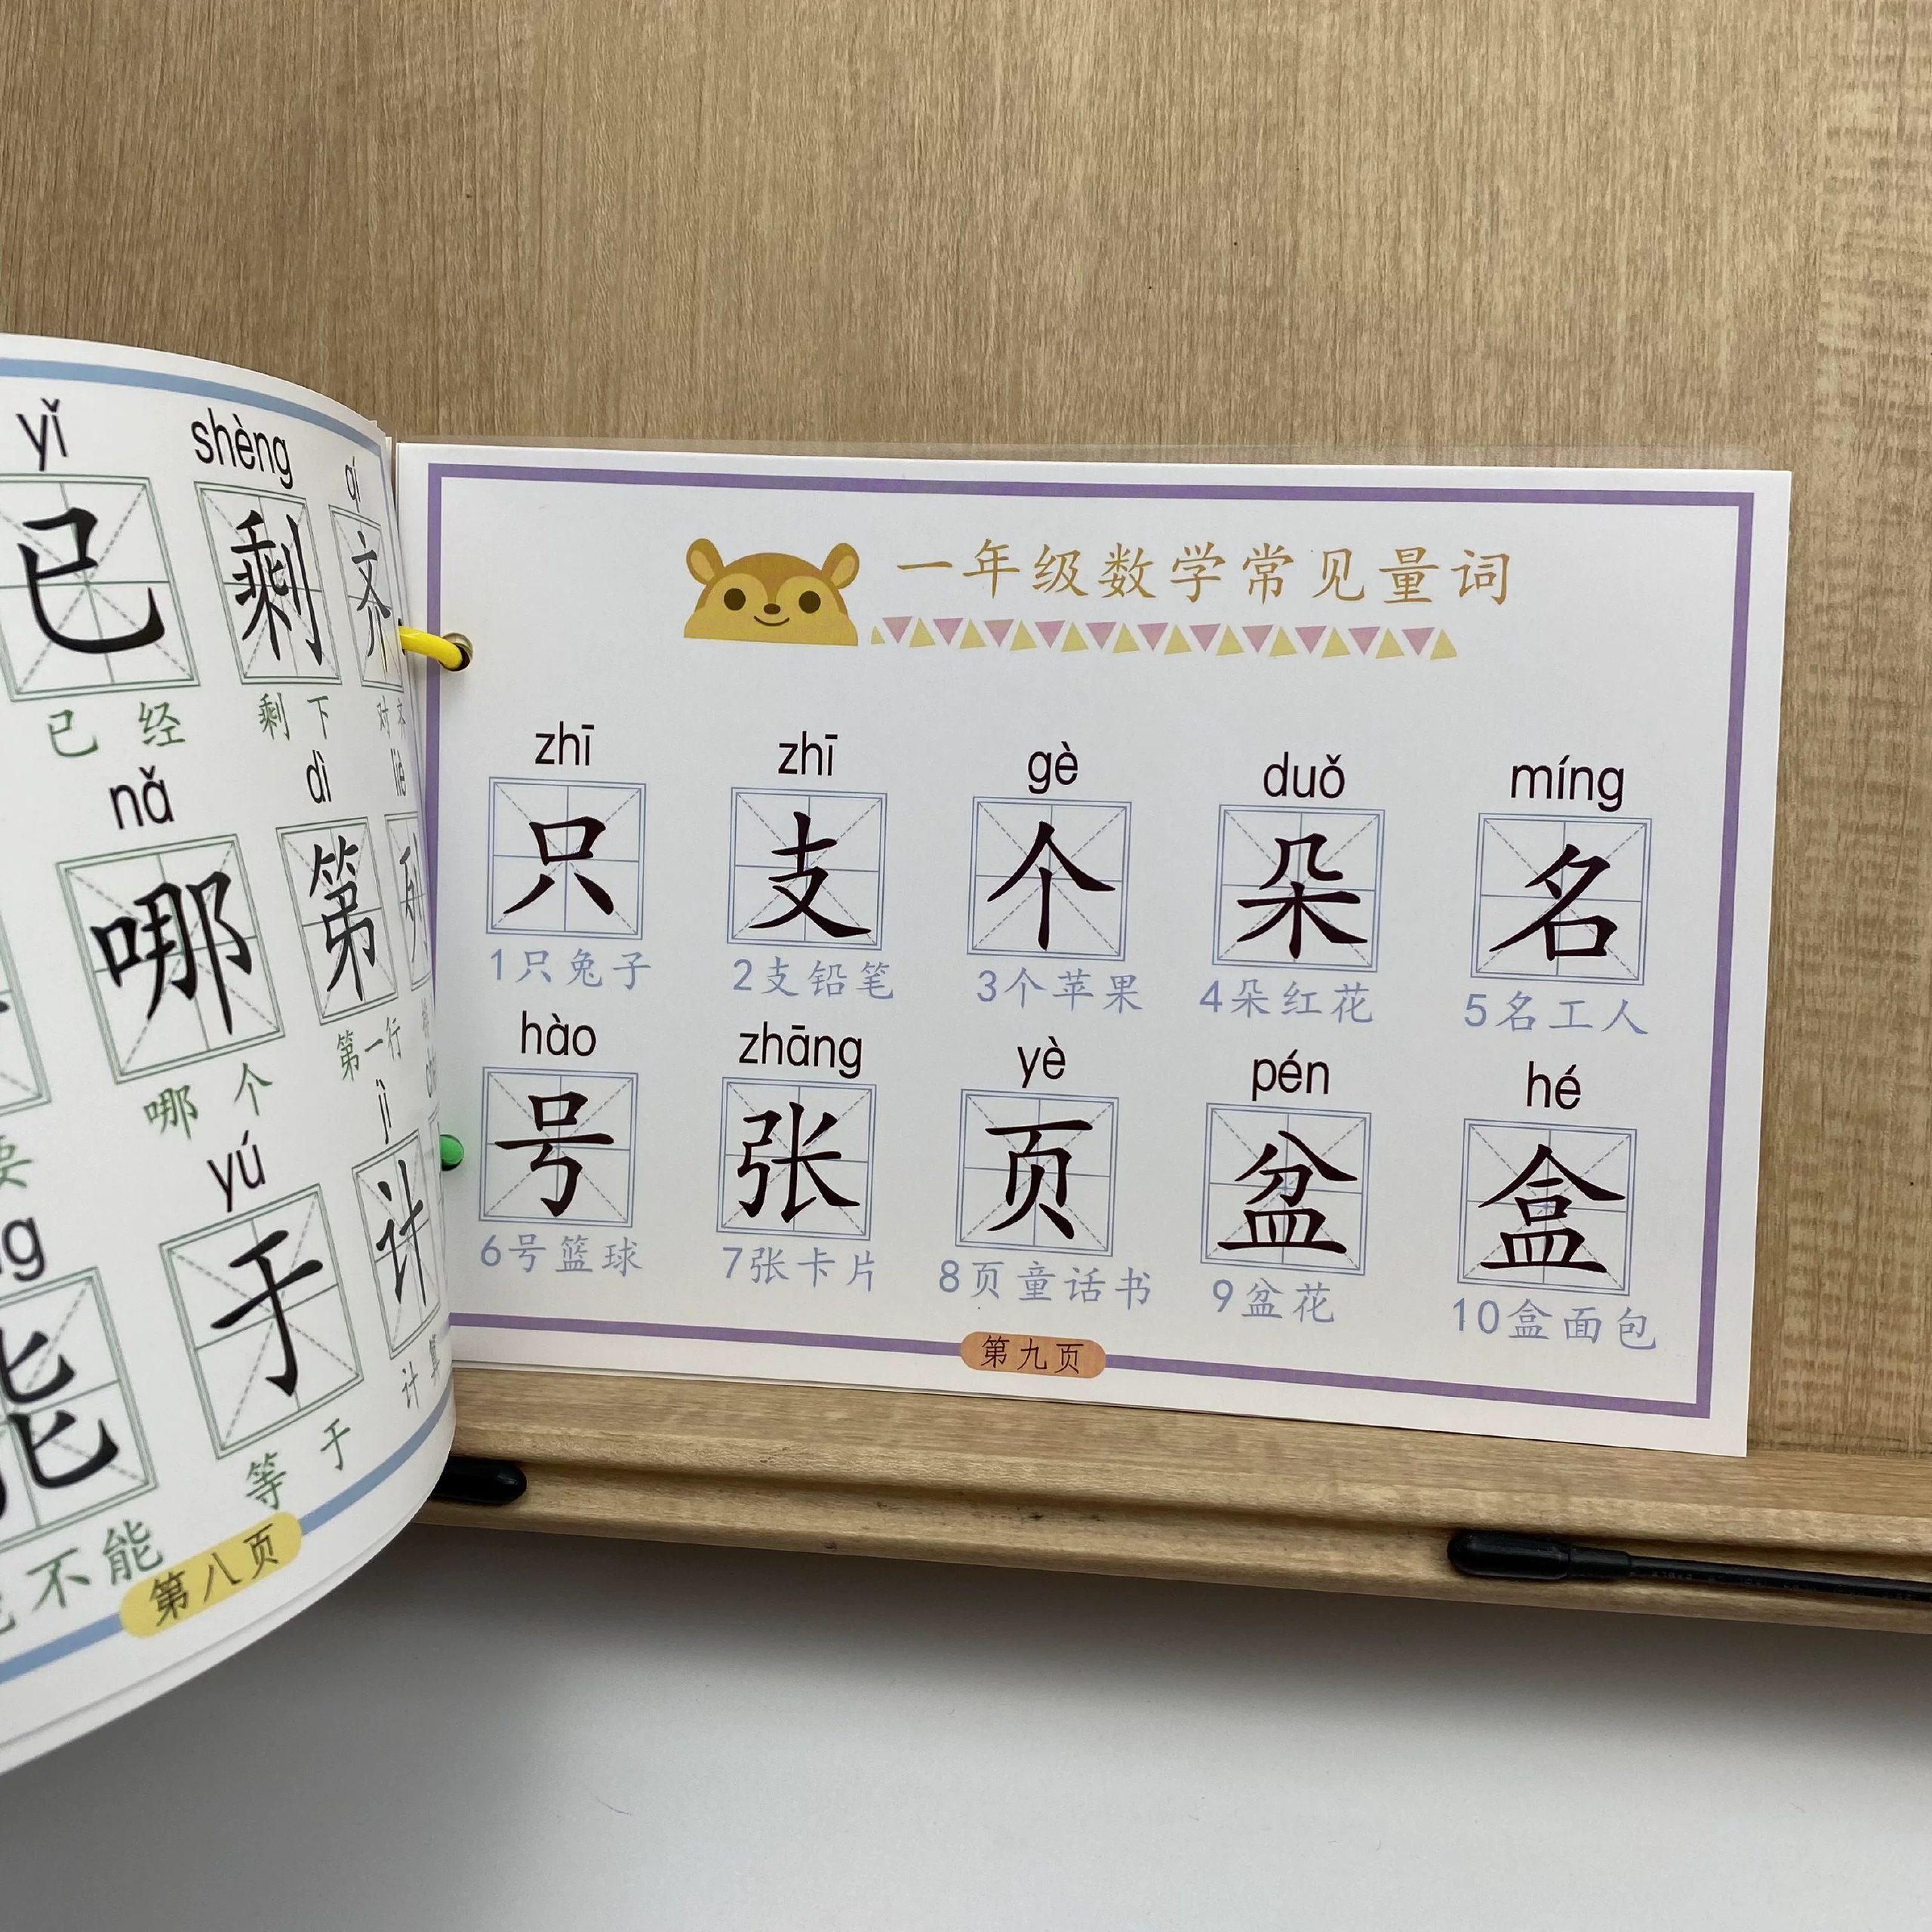 yǐ shèng qí
已 剩 齐
已经 剩下 对齐
nǎ dì liè
哪 第 列
哪个 第一行
要
yú jì
于 计
能
等于 计算
不能
第八页
一年级数学常见量词
zhī zhī gè duǒ míng
只 支 个 朵 名
1只兔子 2支铅笔 3个苹果 4朵红花 5名工人
hào zhāng yè pén hé
号 张 页 盆 盒
6号篮球 7张卡片 8页童话书 9盆花 10盒面包
第九页